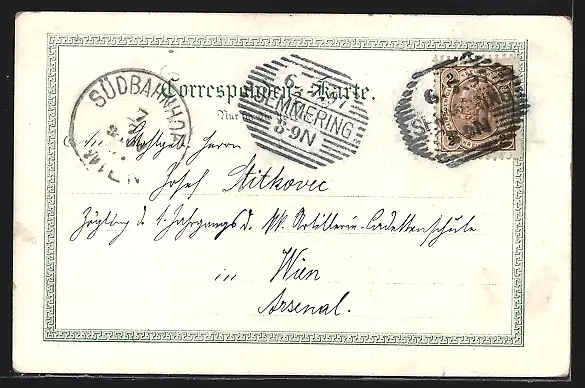 SÜDBAHNHOF
WIEN
Correspondenz-Karte.
Nur für die
SEMMERING
8-9N
2
2
An Hochgeb. Herrn
Josef Sitkovec
Zögling d. 1. Jahrgangs d. kk. Artillerie-Cadettenschule
in Wien
Arsenal.